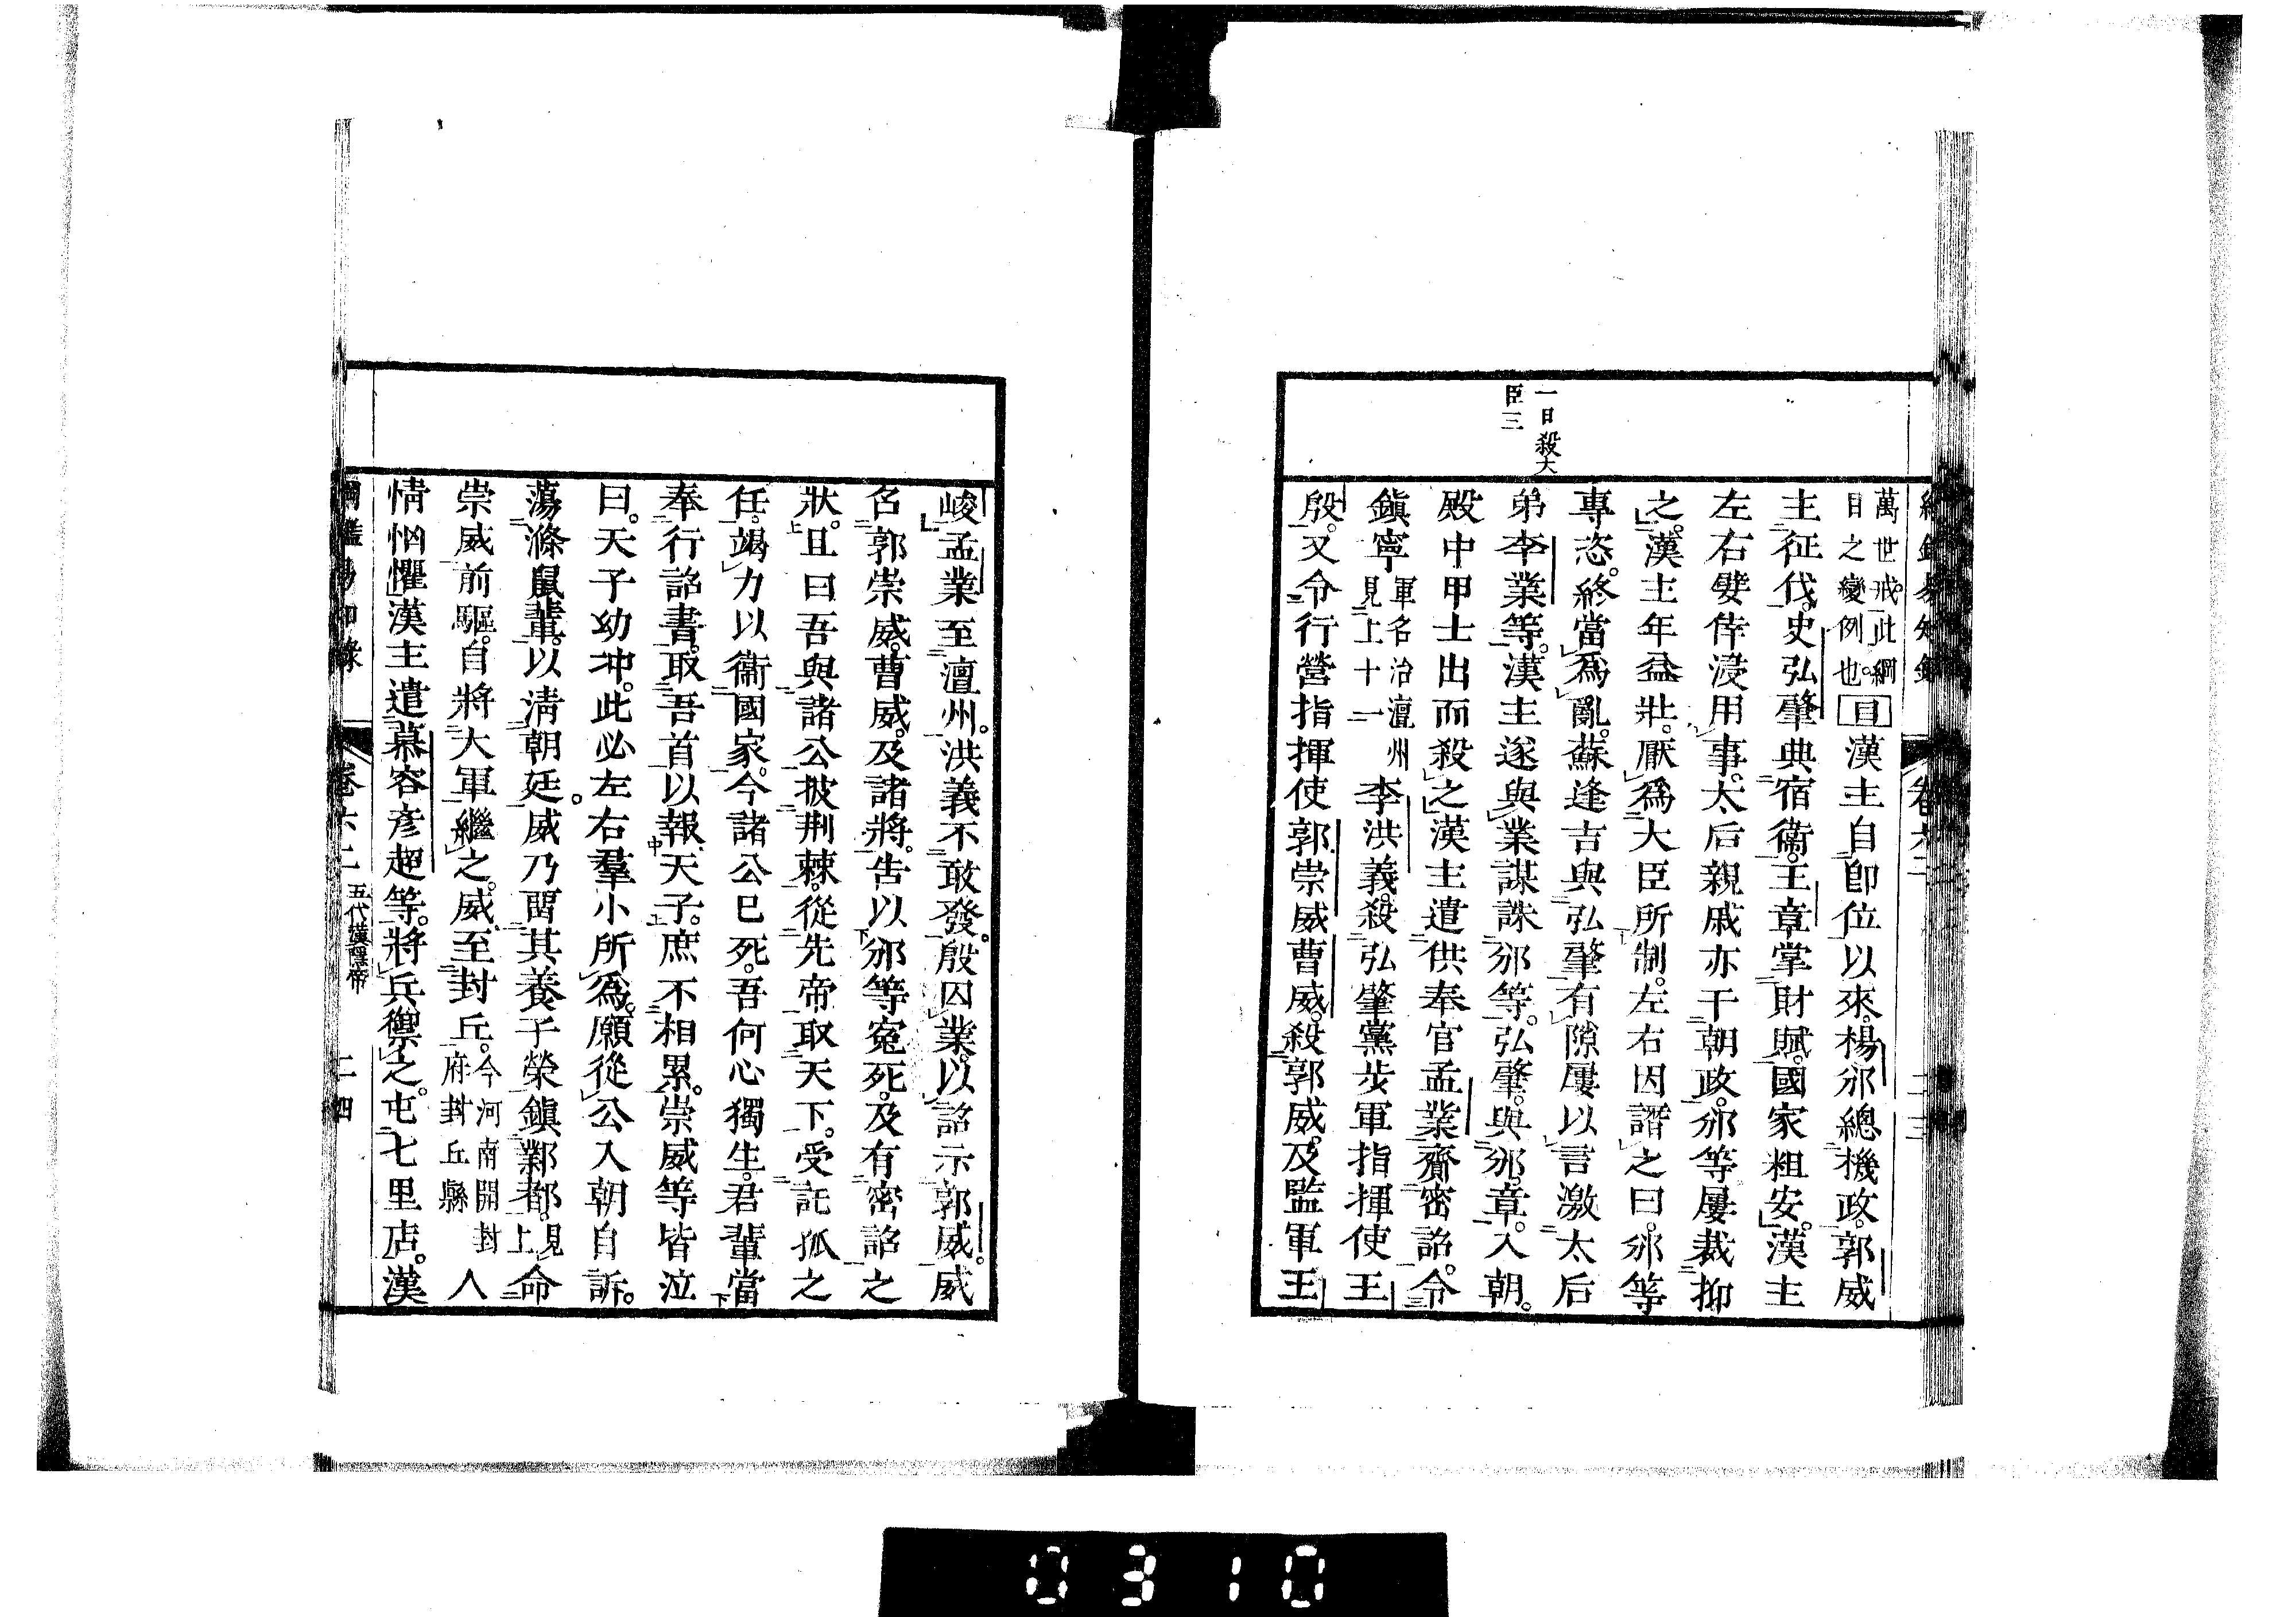 一日殺大
臣三
萬世戒。此綱
目之變例也。目漢主自卽位以來。楊邠總機政。郭威
主征伐。史弘肇典宿衞。王章掌財賦。國家粗安。漢主
左右嬖倖浸用事。太后親戚亦干朝政。邠等屢裁抑
之。漢主年益壯。厭爲大臣所制。左右因譖之曰。邠等
專恣。終當爲亂。蘇逢吉與弘肇有隙屢以言激太后
弟李業等。漢主遂與業謀誅邠等。弘肇。與邠。章。入朝。
殿中甲士出而殺之。漢主遣供奉官孟業齎密詔。令
鎭寧軍名治澶州見上十一李洪義。殺弘肇黨步軍指揮使王
殷。又令行營指揮使郭崇威曹威。殺郭威。及監軍王
峻孟業至澶州。洪義不敢發。殷囚業。以詔示郭威。威
召郭崇威。曹威。及諸將。告以邠等寃死。及有密詔之
狀。且曰吾與諸公披荆棘。從先帝取天下。受託孤之
任。竭力以衞國家。今諸公已死。吾何心獨生。君輩當
奉行詔書。取吾首以報天子。庶不相累。崇威等皆泣
曰。天子幼冲。此必左右羣小所爲。願從公入朝自訴。
蕩滌鼠輩。以淸朝廷。威乃畱其養子榮鎭鄴都。見上命
崇威前驅。自將大軍繼之。威至封丘。今河南開封府封丘縣人
情恟懼漢主遣慕容彥超等。將兵禦之。屯七里店。漢
綱鑑易知錄 卷六二 五代漢隱帝 二四
0310